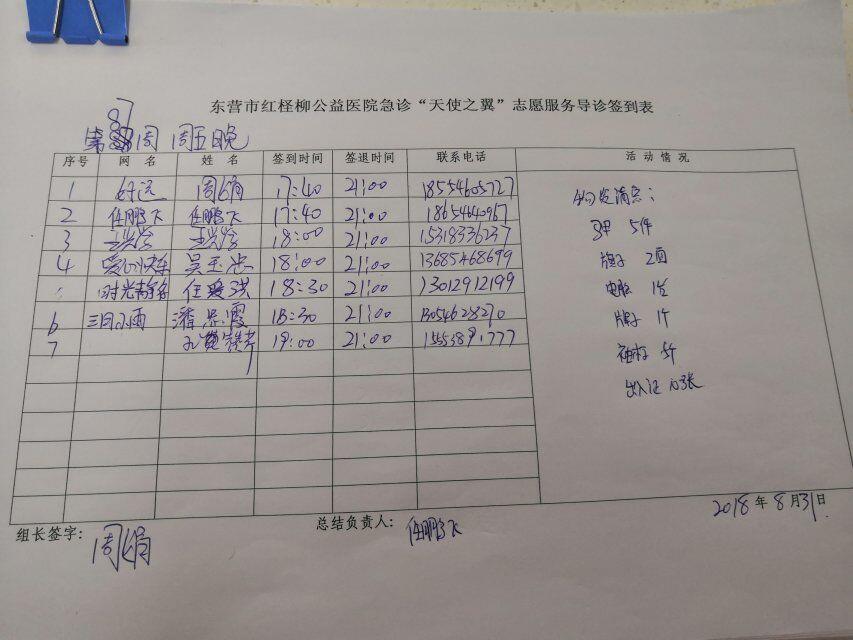 东营市红柽柳公益医院急诊“天使之翼”志愿服务导诊签到表
第87周 周五晚
序号 网名 姓名 签到时间 签退时间 联系电话 活动情况
1 好运 周娟 17:40 21:00 18554605727
2 任鹏飞 任鹏飞 17:40 21:00 18654640967
3 18:00 21:00 15318336237
4 爱心快车 吴玉忠 18:00 21:00 13685468699
时光静好 18:30 21:00 13012912199
6 三月小雨 潘景霞 18:30 21:00 13054628270
7 19:00 21:00
物资清点:
马甲 5件
旗子 2面
电脑 1台
牌子 1个
袖标 5个
出入证 10张
2018年8月31日
组长签字: 周娟
总结负责人: 任鹏飞